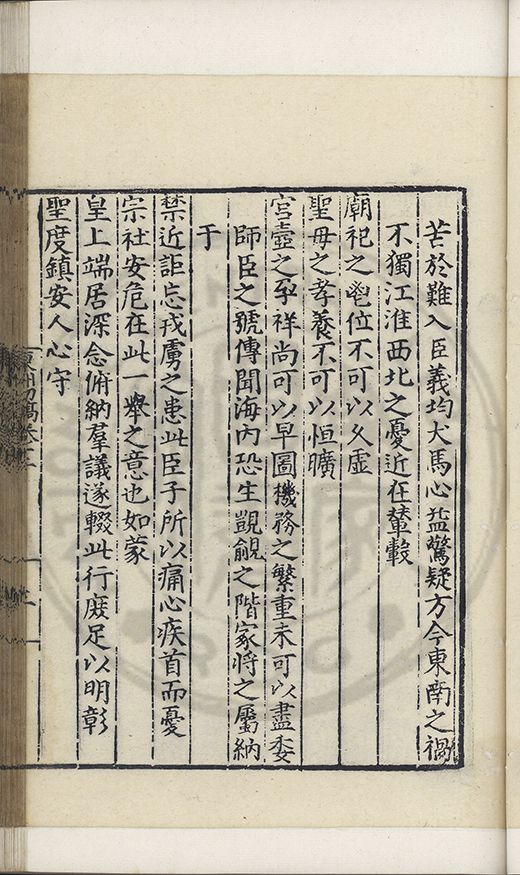 苦於難入臣義均犬馬心益驚疑方今東南之禍
不獨江淮西北之憂近在輦轂
廟祀之鬯位不可以久虛
聖母之孝養不可以恒曠
宮壼之孕祥尚可以早圖機務之繁重未可以盡委
師臣之號傳聞海內恐生覬覦之階家將之屬納
于
禁近詎忘戎虜之患此臣子所以痛心疾首而憂
宗社安危在此一舉之意也如蒙
皇上端居深念俯納羣議遂輟此行庶足以明彰
聖度鎮安人心守